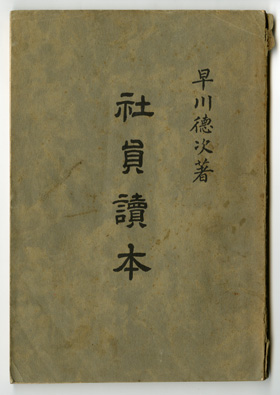 早川德次著
社員讀本